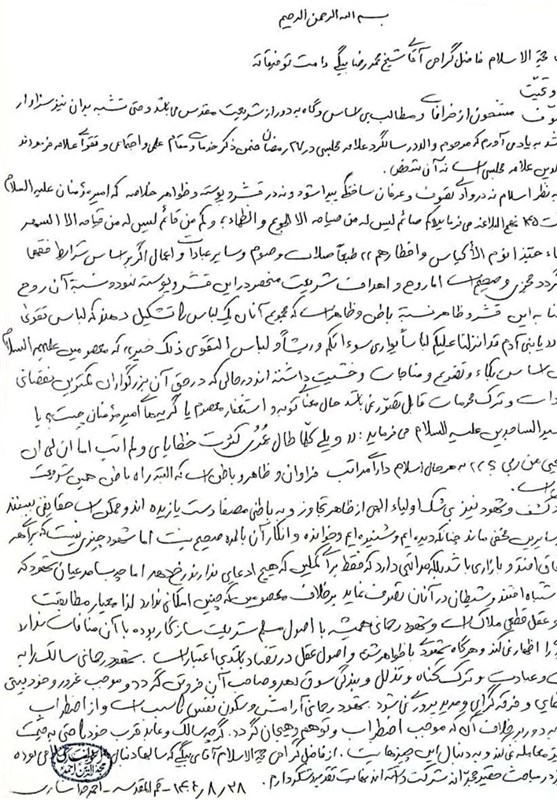 بسم الله الرحمن الرحیم
حجة الاسلام فاضل گرامی آقای شیخ محمد رضا بیگی دامت توفیقاته
و تحیّت
مشحون از خرافات و مطالب بی اساس و گاه به دور از شریعت مقدس می باشد و حتی تشبه بدان نیز سزاوار
به یاد می آورم که مرحوم والد در سالگرد علامه مجلسی در ۲۷ رمضان ضمن ذکر خدمات و مقام علمی و اجتماعی و تقوای علامه فرمودند
علامه مجلسی است نه آن شخص.
به نظر اسلام نه در وادی تصوف و عرفان ساختگی پیدا می شود و نه در قشر و پوسته و ظواهر خلاصه که امیر مؤمنان علیه السلام
۱۴۵ نهج البلاغه می فرماید کم من صائم لیس له من صیامه الا الجوع و الظماء و کم من قائم لیس له من قیامه الا السهر
حبّذا نوم الأکیاس و افطارهم طبعاً صلات و صوم و سایر عبادات و اعمال اگر بر اساس شرایط فقهی
مجزی و صحیح است اما روح و اهداف شریعت منحصر در این قشر و پوسته نبوده و نسبة آن روح
به این قشر و ظاهر نسبة باطن و ظاهر است که مجموع آنان یک لباس را تشکیل دهند که لباس تقوی
یا بنی آدم قد انزلنا علیکم لباساً یواری سوءاتکم و ریشاً و لباس التقوی ذلک خیر، که معصومین علیهم السلام
اساس بکاء و تضرع و مناجات و خشیت داشته اند در حالی که در حق آن بزرگواران کمترین نقصانی
و ترک محرمات قابل تصور نمی باشد حال معنای توبه و استغفار معصوم یا گریه های امیر مؤمنان چیست؟ یا
سید الساجدین علیه السلام می فرماید: ویلی کلما طال عمری کثرت خطایای و لم اتب اما آن لی ان
استحیی من ربی؟ به هر حال اسلام دارای مراتب فراوان و ظاهر و باطن است که البته راه باطن همین شریعت
است.
کشف و شهود نیز بی شک اولیاء الهی از ظاهر تجاوز و به باطنی مصفا دست یازیده اند و ممکن است حقایقی ببینند
سایرین مخفی ماند چنانکه دیده ایم و شنیده ایم و خوانده و انکار آن بالمره صحیح نیست اما شهود چیزی نیست که هرگاه
افتد و بازاری باشد بلکه مراتبی دارد که فقط برای کملین که هیچ ادعایی ندارند رخ دهد اما چه بسا مدعیان شهود که
اشتباه افتند و شیطان در آنان تصرف نماید بر خلاف معصومین که چنین امکانی ندارد لذا معیار مطابقت
و عقل قطعی ملاک است و شهود رحمانی همیشه با اصول مسلم شریعت سازگار بوده با آن منافات ندارد
را اظهار می کند و هرگاه شهودی با ظواهر شرع و اصول عقل در تضاد باشد بی اعتبار است. شهود رحمانی سالک را به
و عبادت و ترک گناه و تذلل و بندگی سوق دهد و صاحب آن فروتن گردد و موجب غرور و خودبینی
و فرقه گرایی و مرید پروری نمی شود. شهود رحمانی آرامش و سکون نفس است و از اضطراب
به دور بر خلاف آن که موجب اضطراب و توهم و هیجان گردد. گرچه سالک و عابد قرب خود را حتی به جنت
معامله نمی کند و به دنبال این چیزها نیست. از فاضل گرامی حجة الاسلام آقای بیگی که سالها به دنبال بوده
در مباحث حقیر مجدّانه شرکت داشته اند نهایت تقدیر و تشکر دارم.
۲۸/۸/۱۴۰۲ - قم المقدسه -